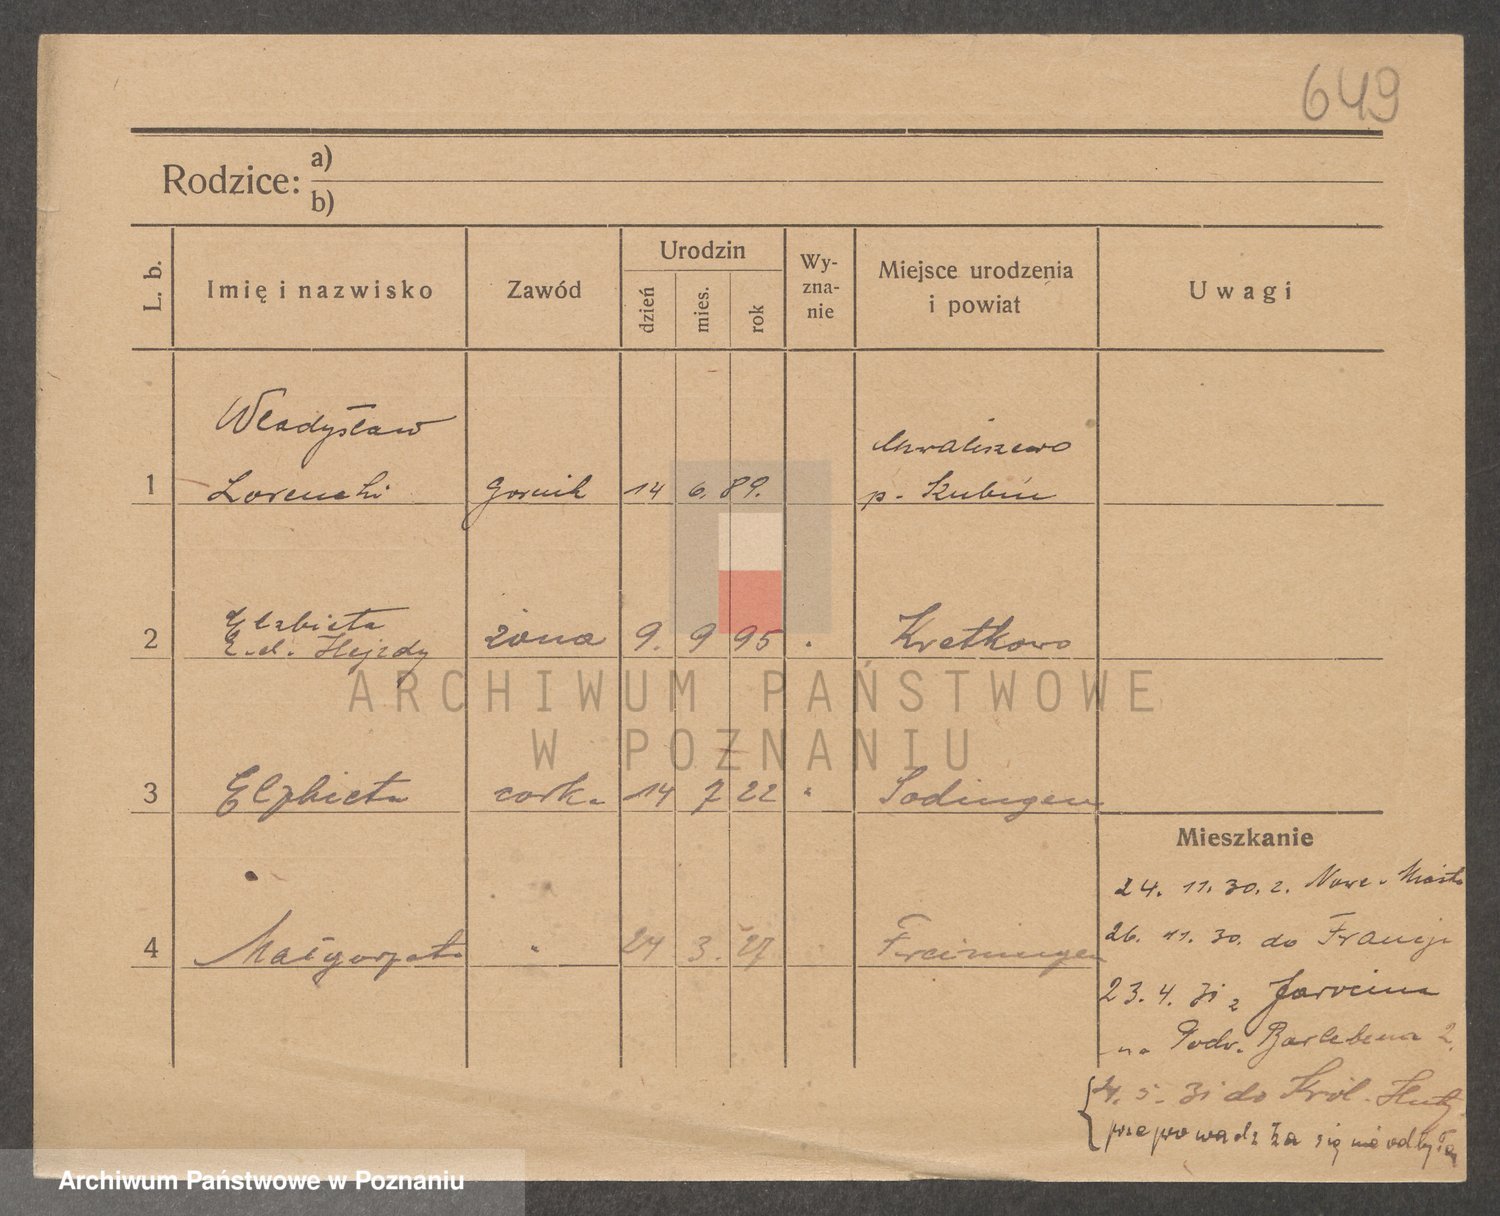 649
Rodzice: a)
b)
L. b. Imię i nazwisko Zawód Urodzin dzień mies. rok Wy-zna-nie Miejsce urodzenia i powiat Uwagi
Władysław
Chwaliszewo
1 Lorencki gornik 14 6. 89. p. Kubin
Elzbieta
2 z d. Hejzdy żona 9. 9 95 Kretkowo
ARCHIWUM PAŃSTWOWE
W POZNANIU
3 Elzbieta corka 14 7 22 " Sodingen
Mieszkanie
24. 11. 30. z. Nowe-Miasto
26. 11. 30. do Francji
4 Małgorzata " 24 3. 27
23. 4. 31 z Jarocina
na Podr.
4. 5. 31 do Król. Huty
przeprowadzka się nie odbyła
Archiwum Państwowe w Poznaniu